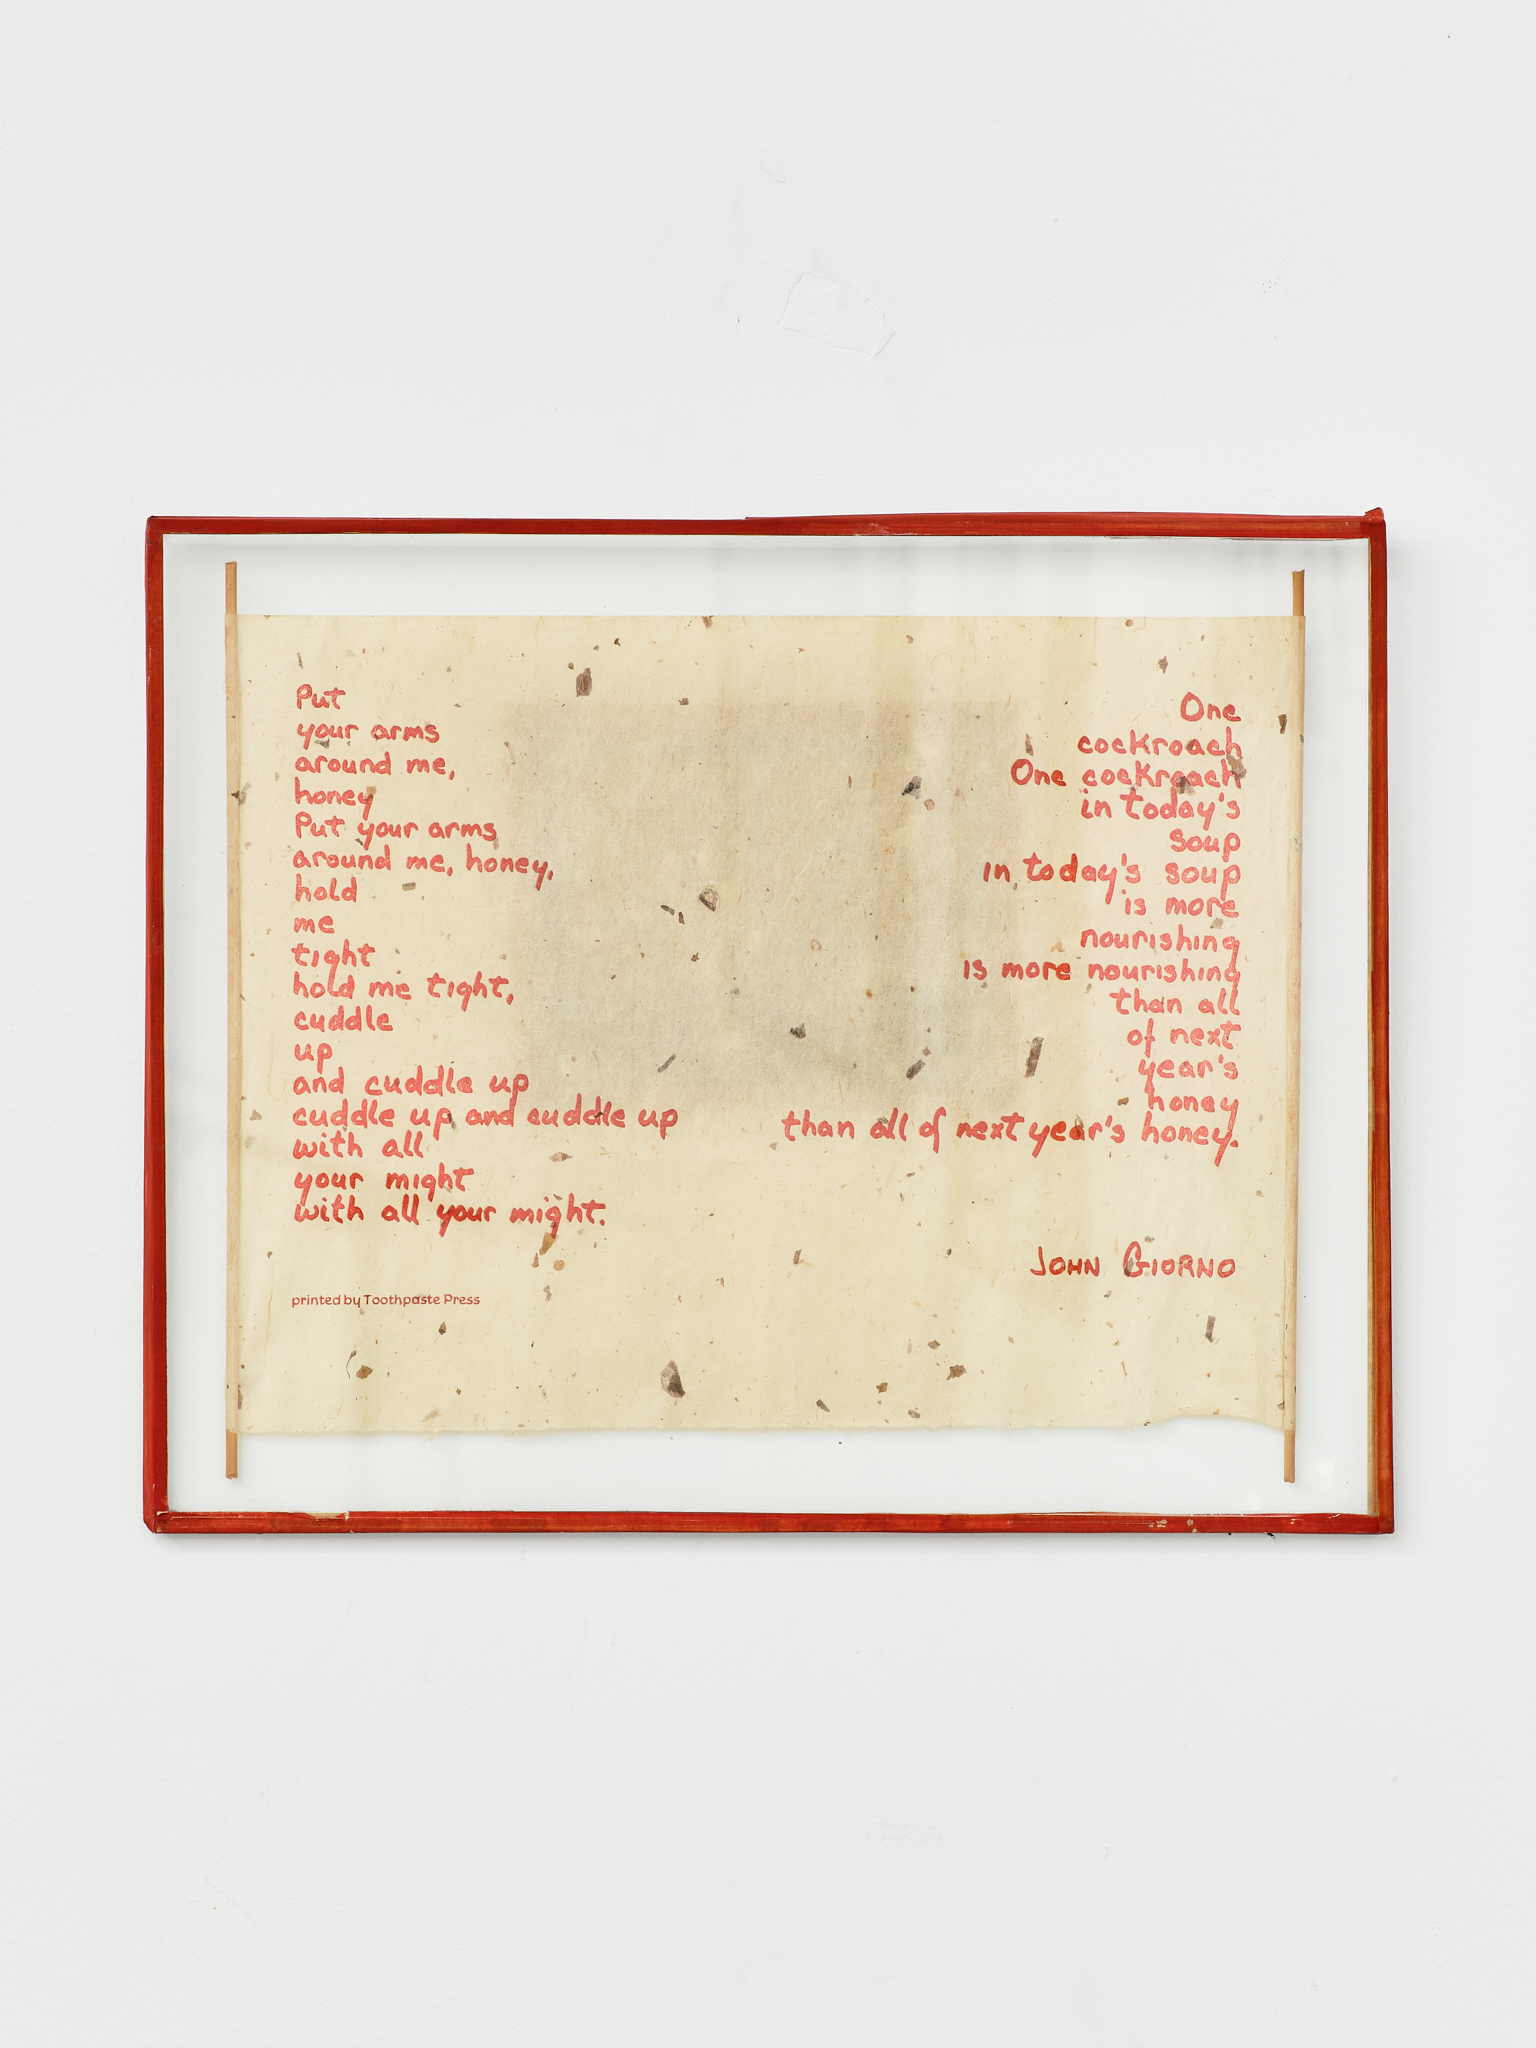 Put
your arms
around me,
honey
Put your arms
around me, honey,
hold
me
tight
hold me tight,
cuddle
up
and cuddle up
cuddle up and cuddle up
with all
your might
with all your might.
printed by Toothpaste Press
One
cockroach
One cockroach
in today's
soup
in today's soup
is more
nourishing
is more nourishing
than all
of next
year's
honey
than all of next year's honey.
JOHN GIORNO